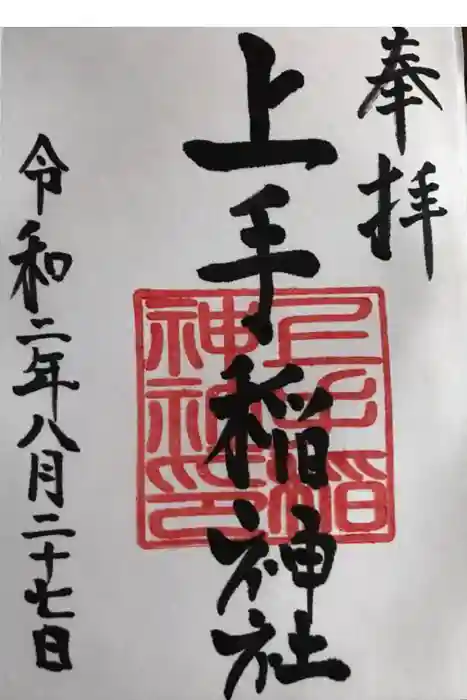 奉拝
上手稲神社
令和二年八月二十七日